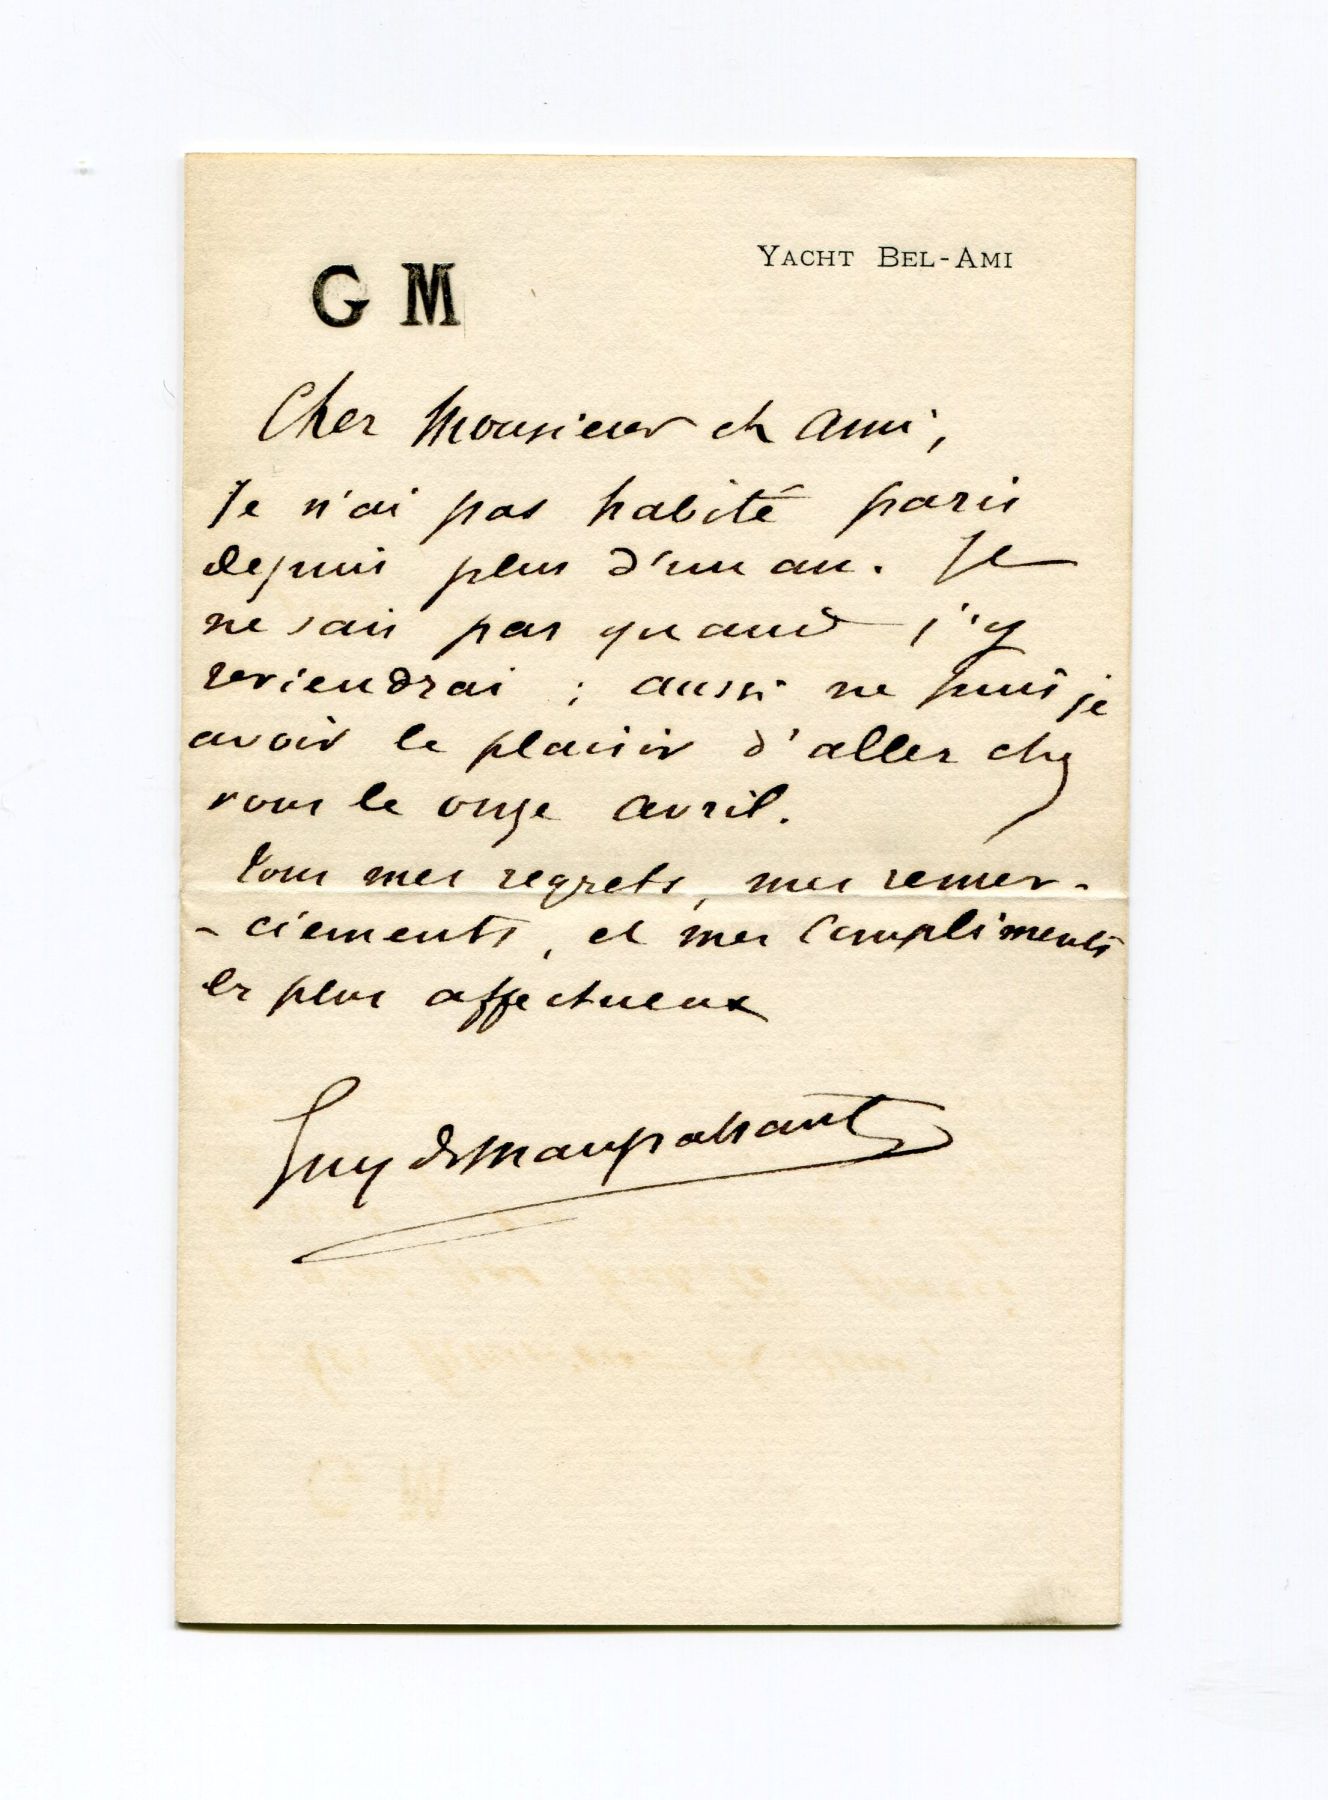 YACHT BEL-AMI
G M
Cher Monsieur et Ami,
Je n'ai pas habité paris
depuis plus d'un an. Je
ne sais pas quand j'y
reviendrai ; aussi ne puis je
avoir le plaisir d'aller chez
vous le onze avril.
Tous mes regrets, mes remer-
- ciements, et mes compliments
les plus affectueux
Guy de Maupassant